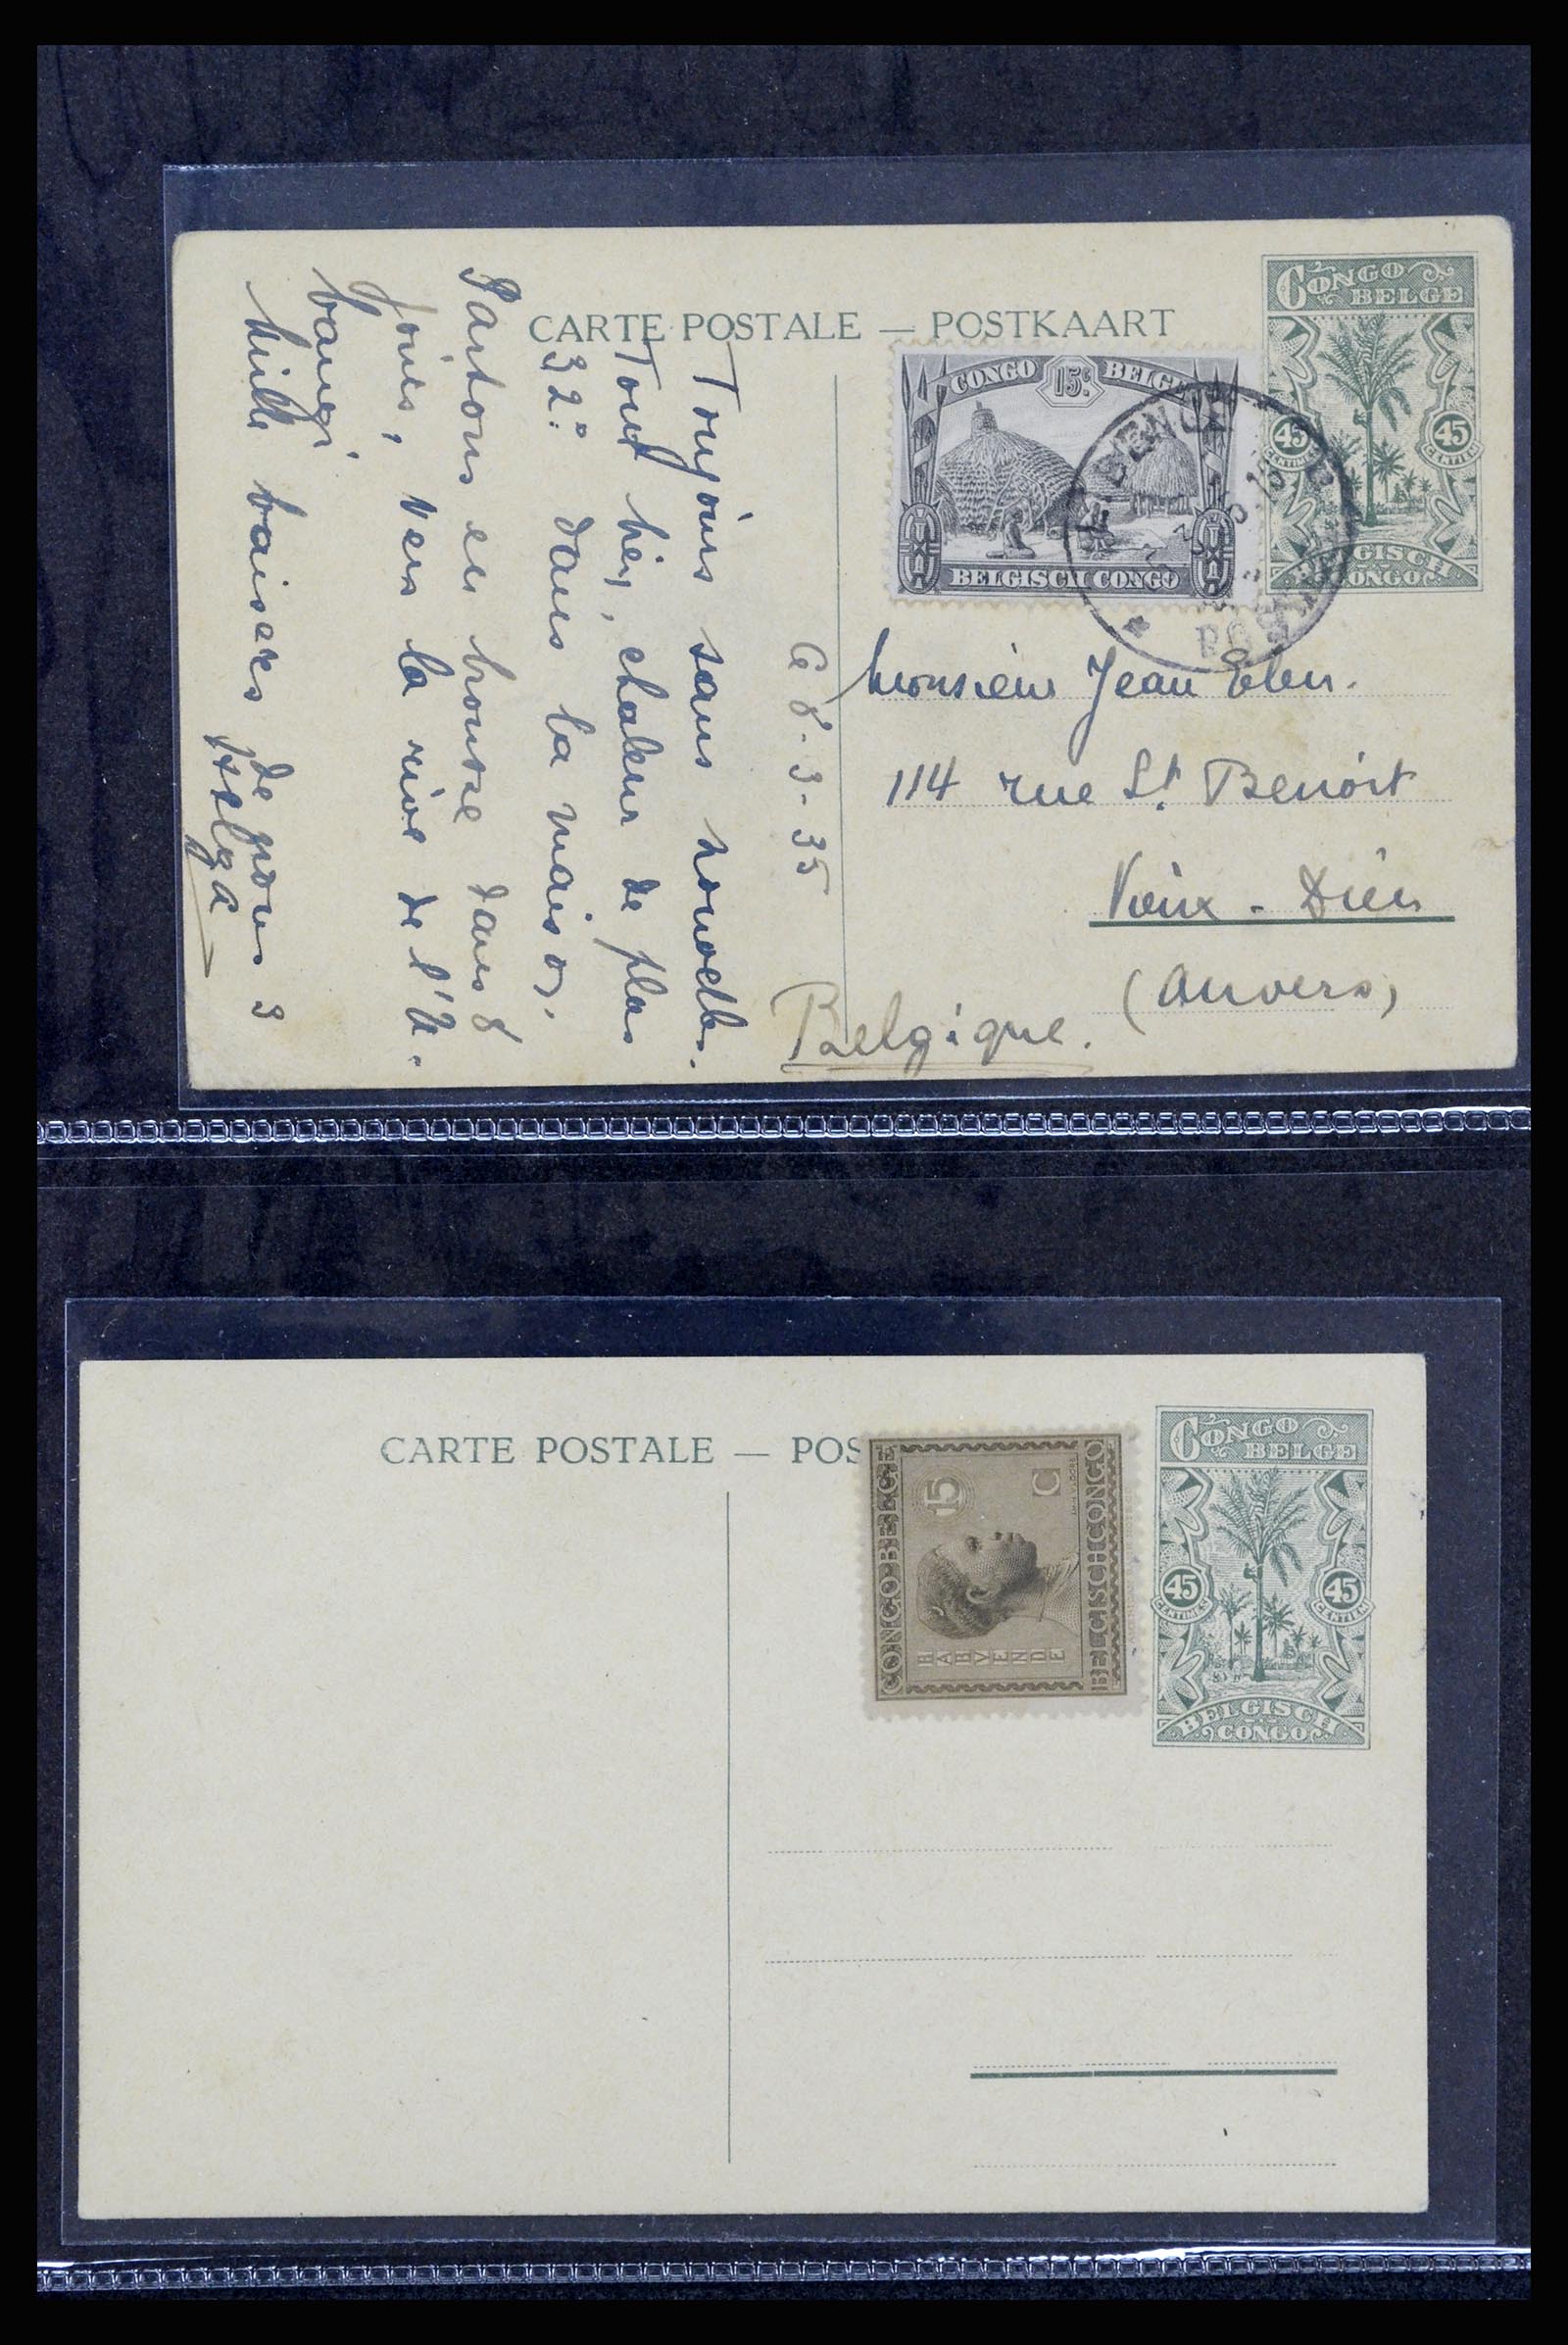 CONGO
BELGE
45 45
CENTIMES CENTIEM
BELGISCH
CONGO
CARTE POSTALE — POSTKAART
CONGO 15c. BELGE
BELGISCH CONGO
Ce 8-3-35
Toujours sans nouvelles.
Tout bien, chaleur de plus
32° dans la maison.
Partons en brousse dans 8
jours, vers la rive de l'U.
bangi
Mille baisers de nous 3
Helga
Monsieur Jean Elen.
114 rue St. Benoit
Vieux-Dieu
(Anvers)
Belgique.
CARTE POSTALE — POS
CONGO BELGE
15 C
BABVENDE
BELGISCH CONGO
CONGO
BELGE
45 45
CENTIMES CENTIEM
BELGISCH
CONGO